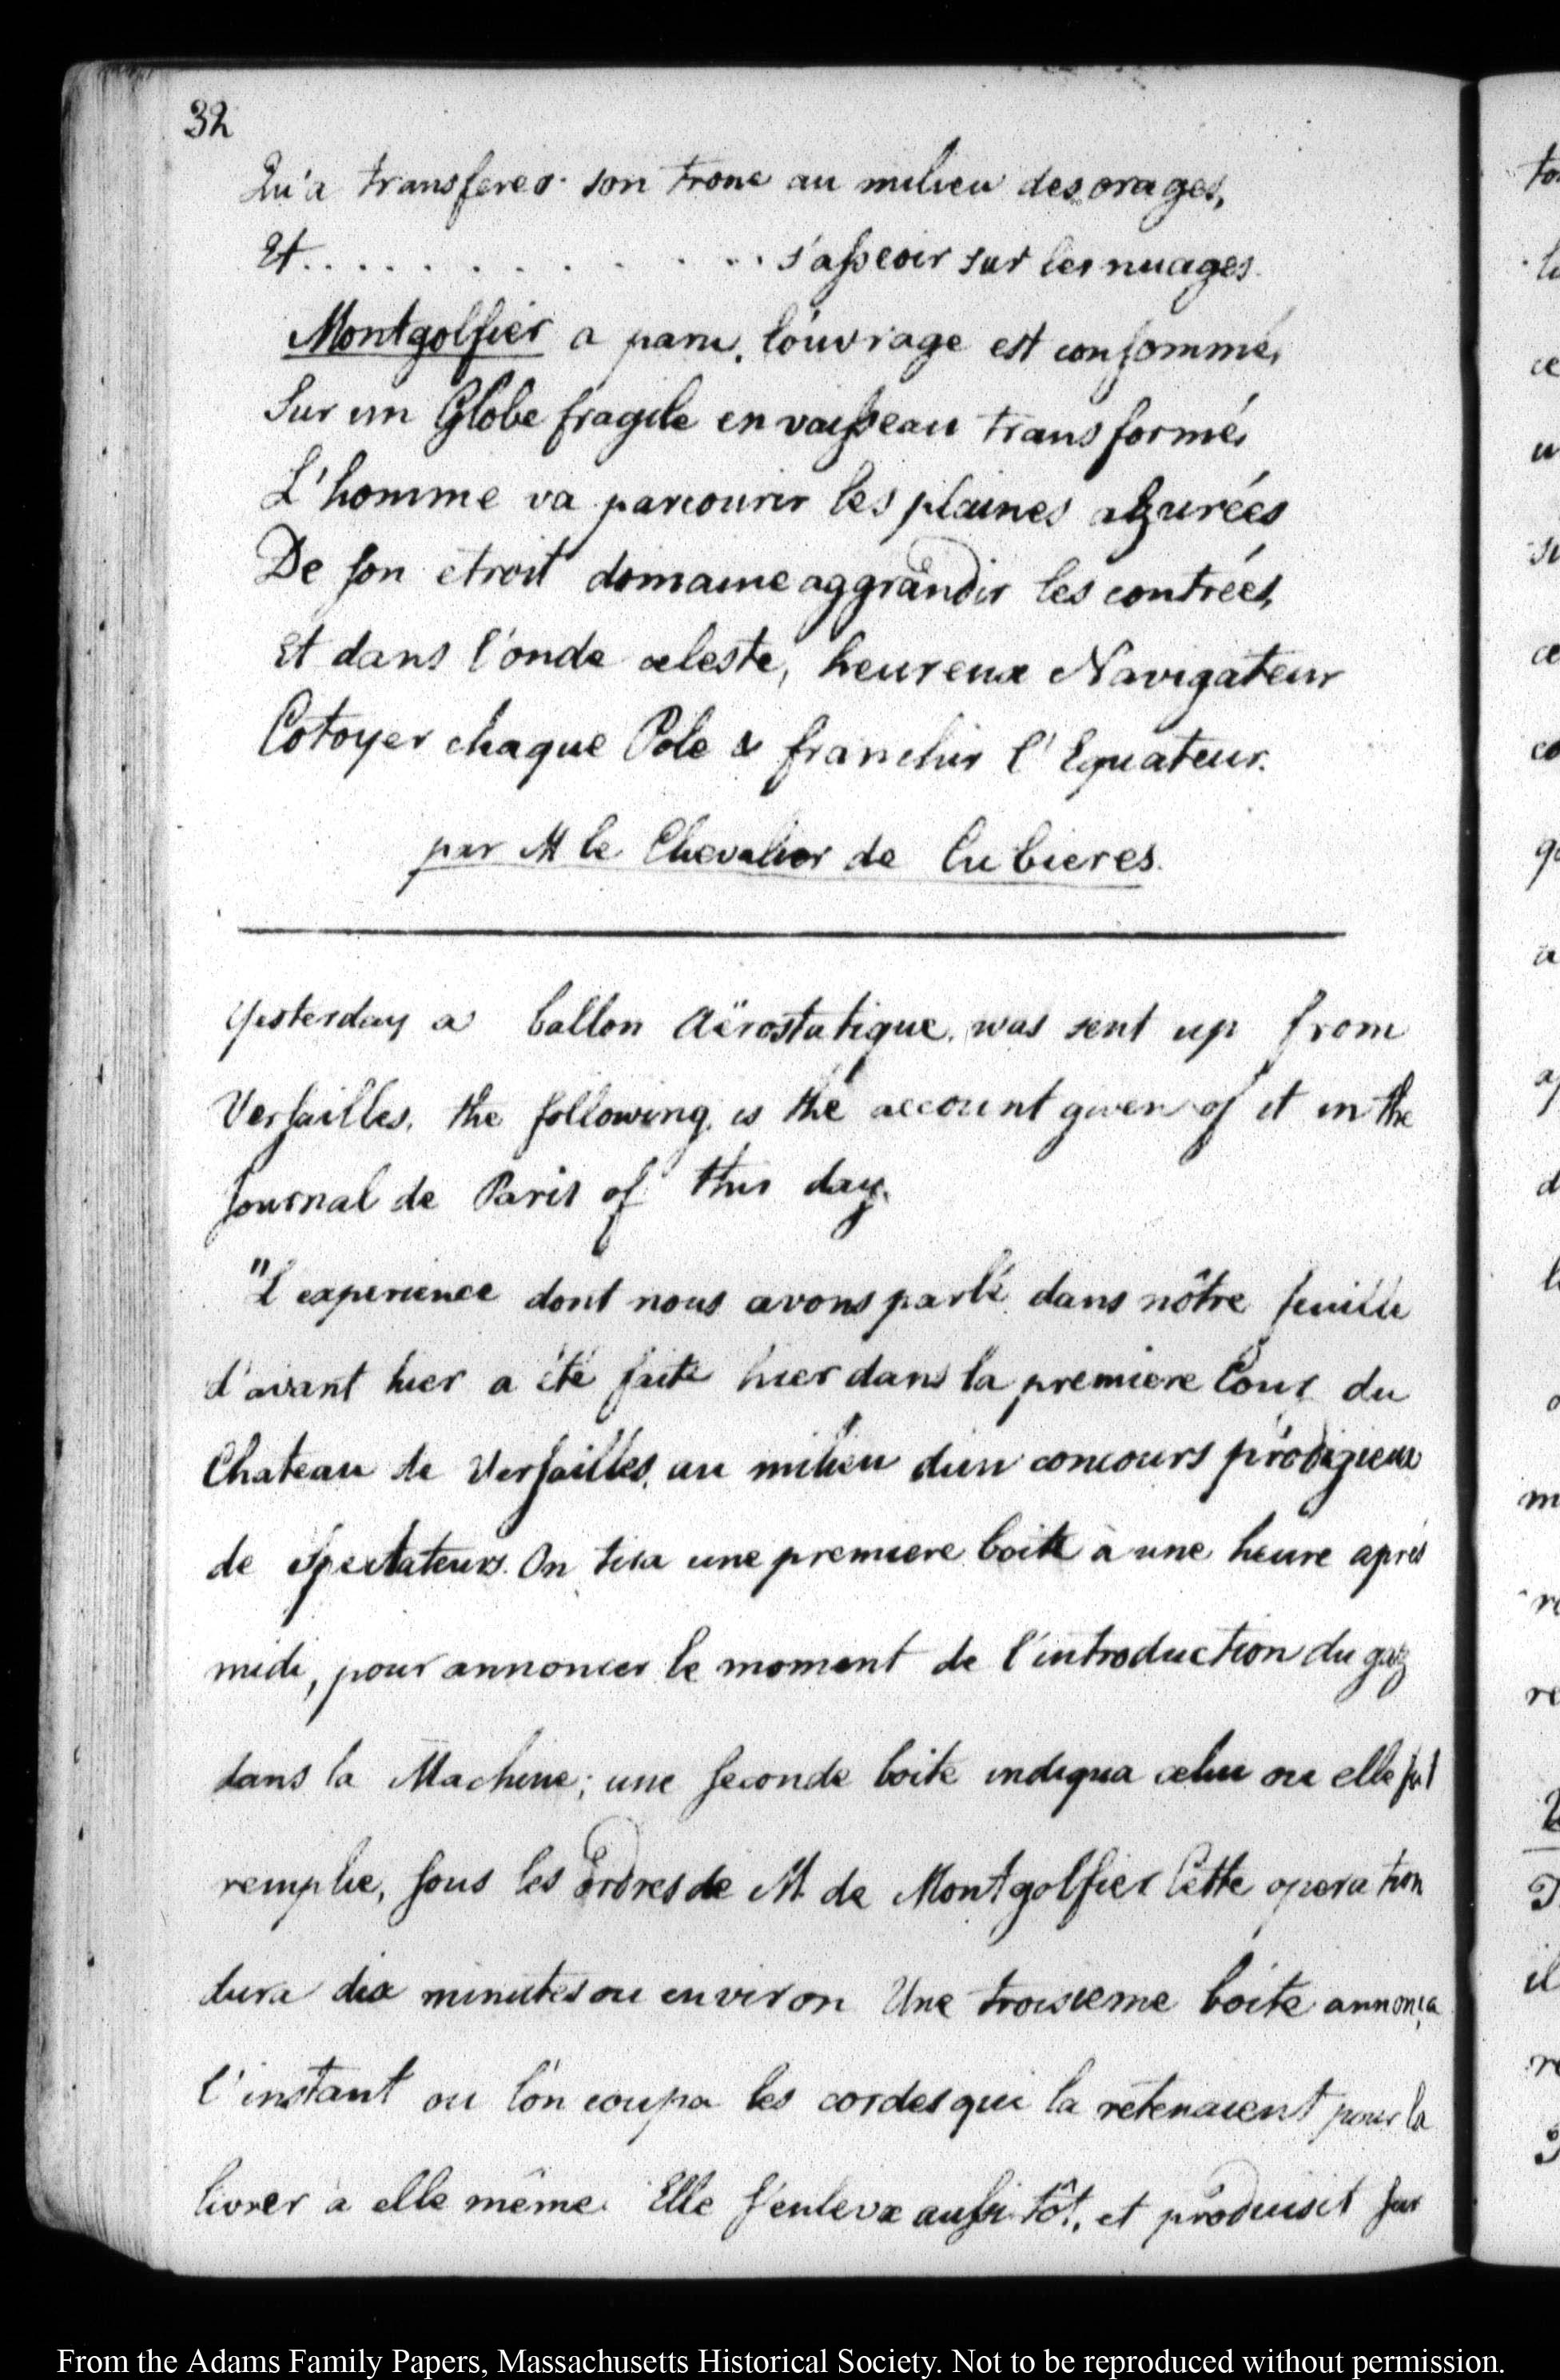 32
Qu'a transferer son trone au milieu des orages,
Et. . . . . . . . . . . . . s'asseoir sur les nuages.
Montgolfier a paru. l'ouvrage est consommé,
Sur un Globe fragile en vaisseau transformé,
L'homme va parcourir les plaines azurées
De son etroit domaine aggrandir les contrées,
Et dans l'onde celeste, heureux Navigateur
Cotoyer chaque Pole & franchir l'Equateur.
par M le Chevalier de Cubieres.
Yesterday a ballon Aërostatique was sent up from
Versailles, the following is the account given of it in the
Journal de Paris of this day.
"L'experience dont nous avons parlé dans nôtre feuille
d'avant hier a été faite hier dans la premiere Cour du
Chateau de Versailles, au milieu d'un concours prodigieux
de Spectateurs. On tira une premiere boite à une heure aprés
midi, pour annoncer le moment de l'introduction du gaz
dans la Machine; une seconde boite indiqua celui ou elle fut
remplie, sous les ordres de M. de Montgolfier Cette operation
dura dix minutes ou environ Une troisieme boite annonça
l'instant ou l'on coupa les cordes qui la retenaient pour la
livrer à elle même. Elle s'enleva aussi-tôt, et produisit sur
From the Adams Family Papers, Massachusetts Historical Society. Not to be reproduced without permission.